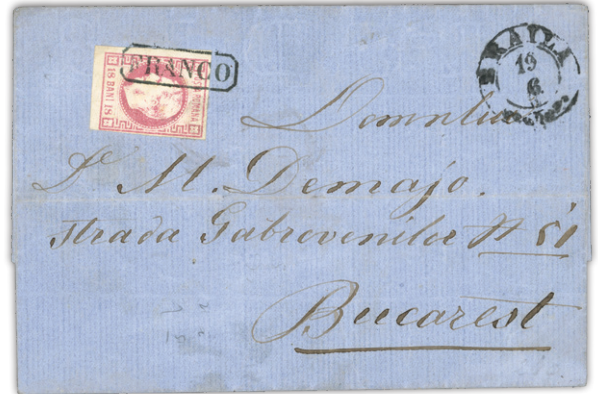 FRANCO
18 BANI 18
BRAILA
19
6
Domnului
D. M. Demajo.
Strada Gabrovenilor N 51
Bucarest